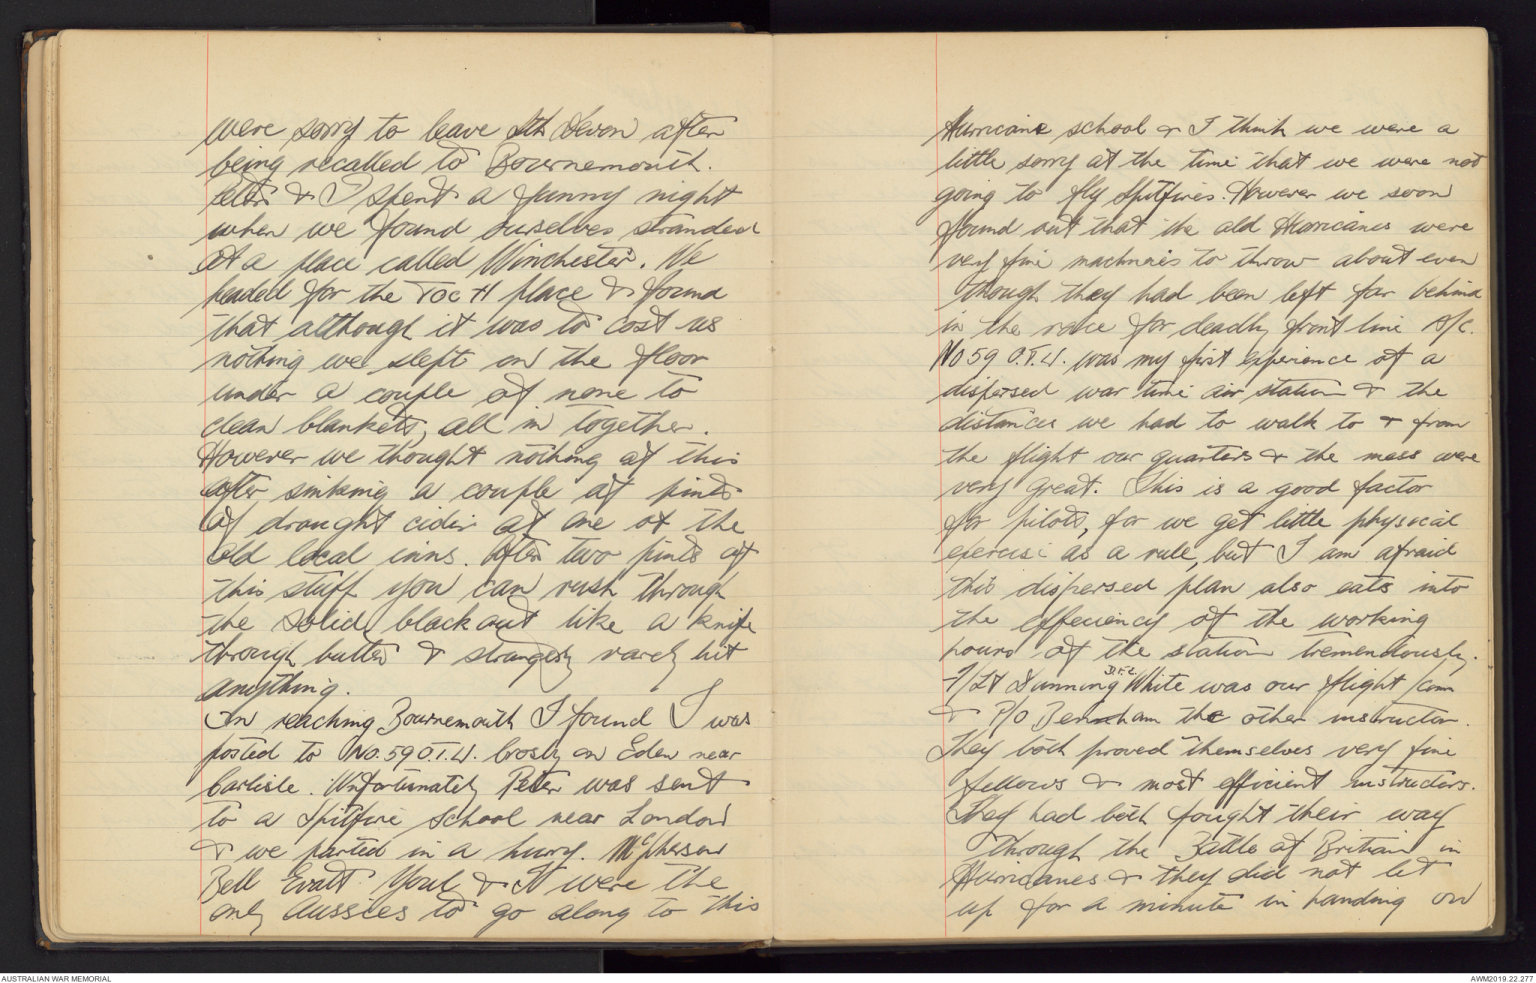 were sorry to leave Sth Devon after
being recalled to Bournemouth.
Peter & I spent a funny night
when we found ourselves stranded
at a place called Winchester. We
headed for the TOC H place & found
that although it was to cost us
nothing we slept on the floor
under a couple of none to
clean blankets, all in together.
However we thought nothing of this
after sinking a couple of pints
of draught cider at one of the
old local inns. After two pints of
this stuff you can rush through
the solid blackout like a knife
through butter & strangely rarely hit
anything.
On reaching Bournemouth I found I was
posted to No. 59 O.T.U. Crosby on Eden near
Carlisle. Unfortunately Peter was sent
to a Spitfire school near London
& we parted in a hurry. McPherson
Bell Evatt Youl & I were the
only Aussies to go along to this
Hurricane school & I think we were a
little sorry at the time that we were not
going to fly Spitfires. However we soon
found out that the old Hurricanes were
very fine machines to throw about even
though they had been left far behind
in the race for deadly front line A/C.
No 59 O.T.U. was my first experience of a
dispersed war time air station & the
distances we had to walk to & from
the flight our quarters & the mess were
very great. This is a good factor
for pilots, for we get little physical
exercise as a rule, but I am afraid
this dispersed plan also eats into
the effeciency of the working
hours of the station tremendously.
F/Lt Dunning D.F.C. White was our flight /com
& P/O Bernham the other instructor.
They both proved themselves very fine
fellows & most efficient instructors.
They had both fought their way
through the Battle of Britain in
Hurricanes & they did not let
up for a minute in handing on
AUSTRALIAN WAR MEMORIAL
AWM2019.22.277